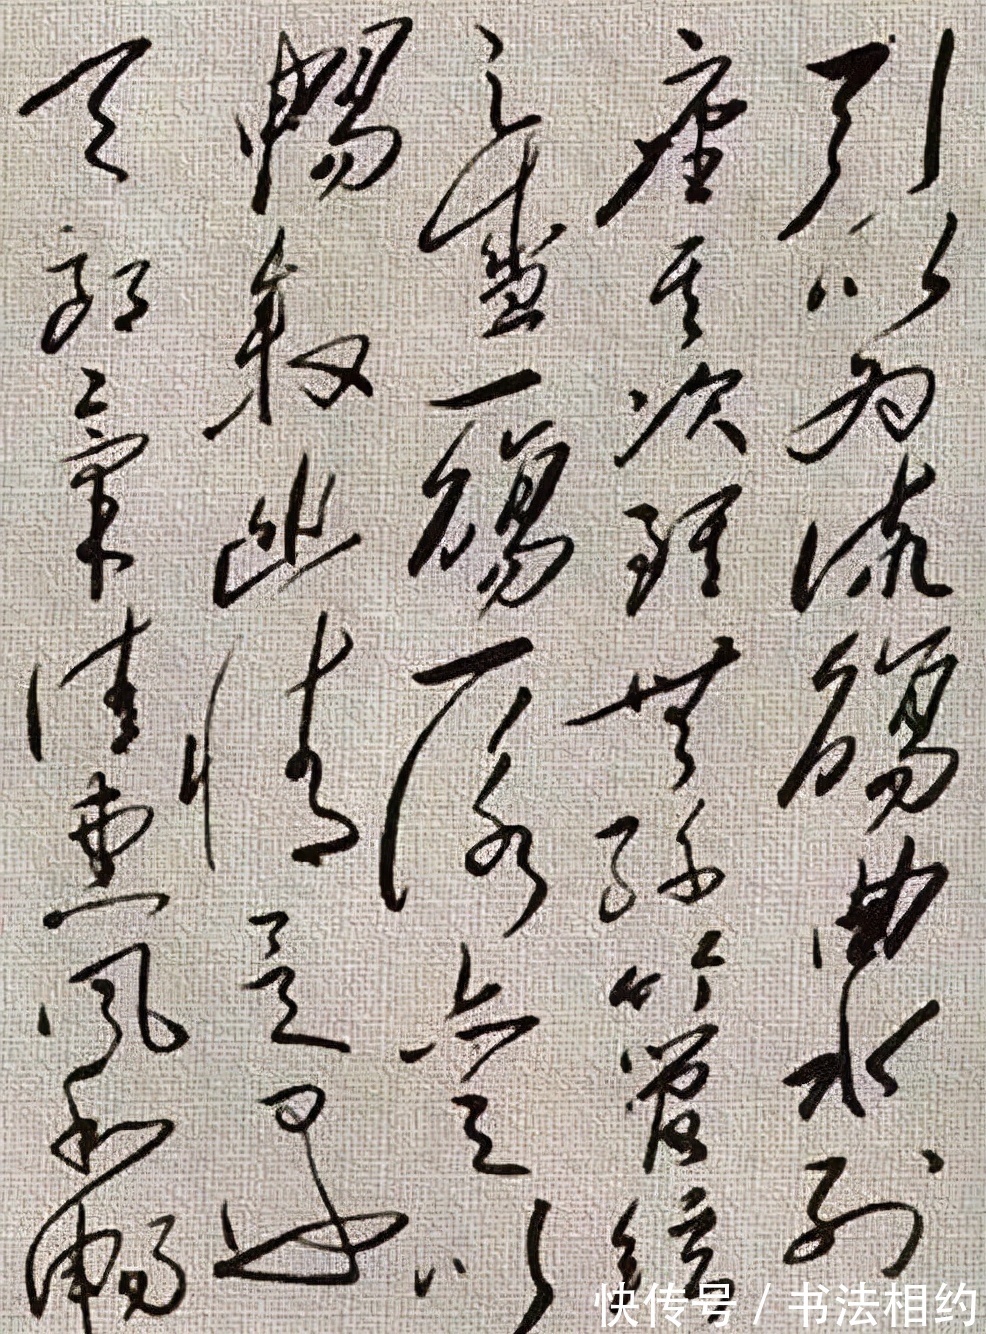 引以为流觞曲水列
坐其次虽无丝竹管弦
之盛一觞一咏亦足以
畅叙幽情是日也
天朗气清惠风和畅
快传号 / 书法相约